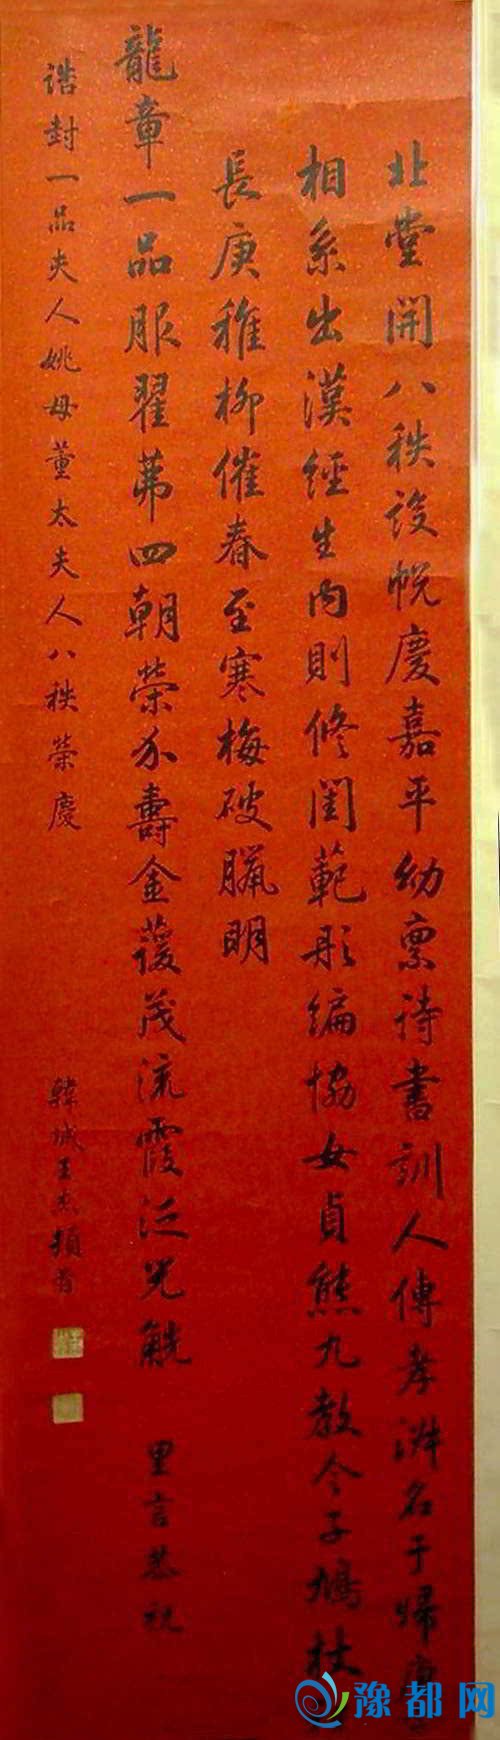 北堂開八秩設帨慶嘉平幼稟詩書訓人傳孝淑名于歸
相系出漢經生內則修閨範彤編協女貞熊丸教令子鳩杖
長庚稚柳催春至寒梅破臘明
龍章一品服翟茀四朝榮介壽金萲茂流霞泛兕觥 里言恭祝
誥封一品夫人姚母董太夫人八秩榮慶
韓城王杰頓首
豫都网